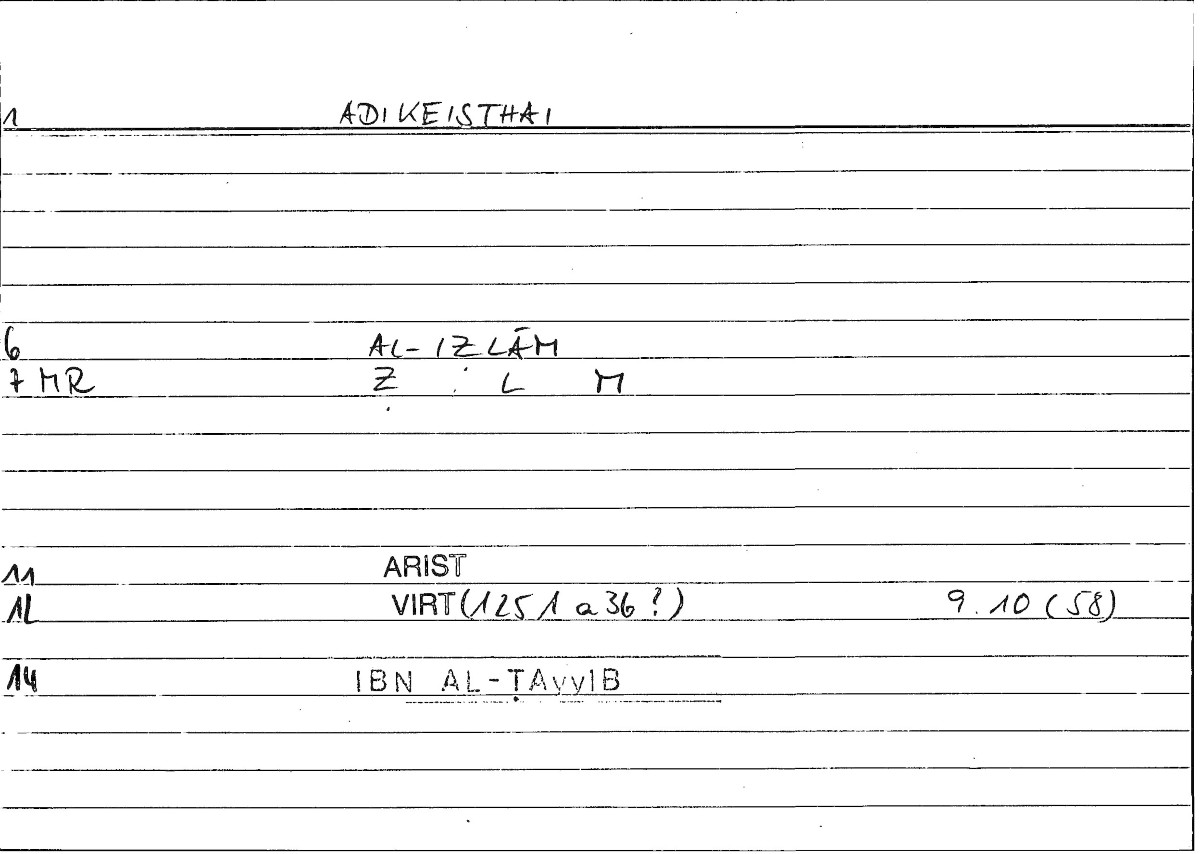 1 ADIKEISTHAI
6 AL-IẒLĀM
7 MR Ẓ L M
11 ARIST
12 VIRT (1251 a 36 ?) 9.10 (58)
14 IBN AL-ṬAyyIB